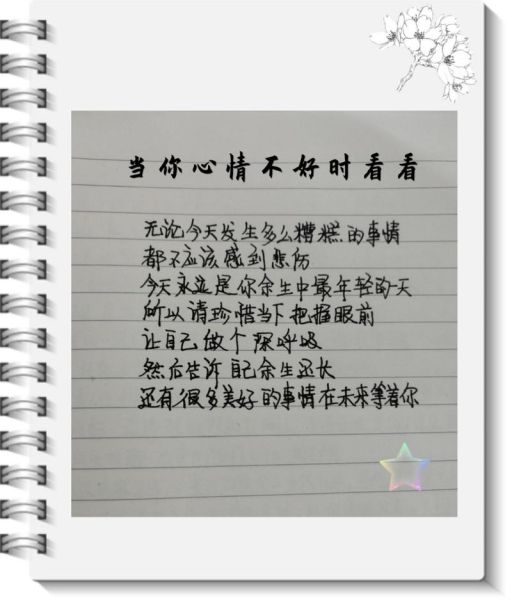 当你心情不好时看看
无论今天发生多么糟糕的事情
都不应该感到悲伤
今天永远是你余生中最年轻的一天
所以请珍惜当下把握眼前
让自己做个深呼吸
然后告诉自己余生还长
还有很多美好的事情在未来等着你